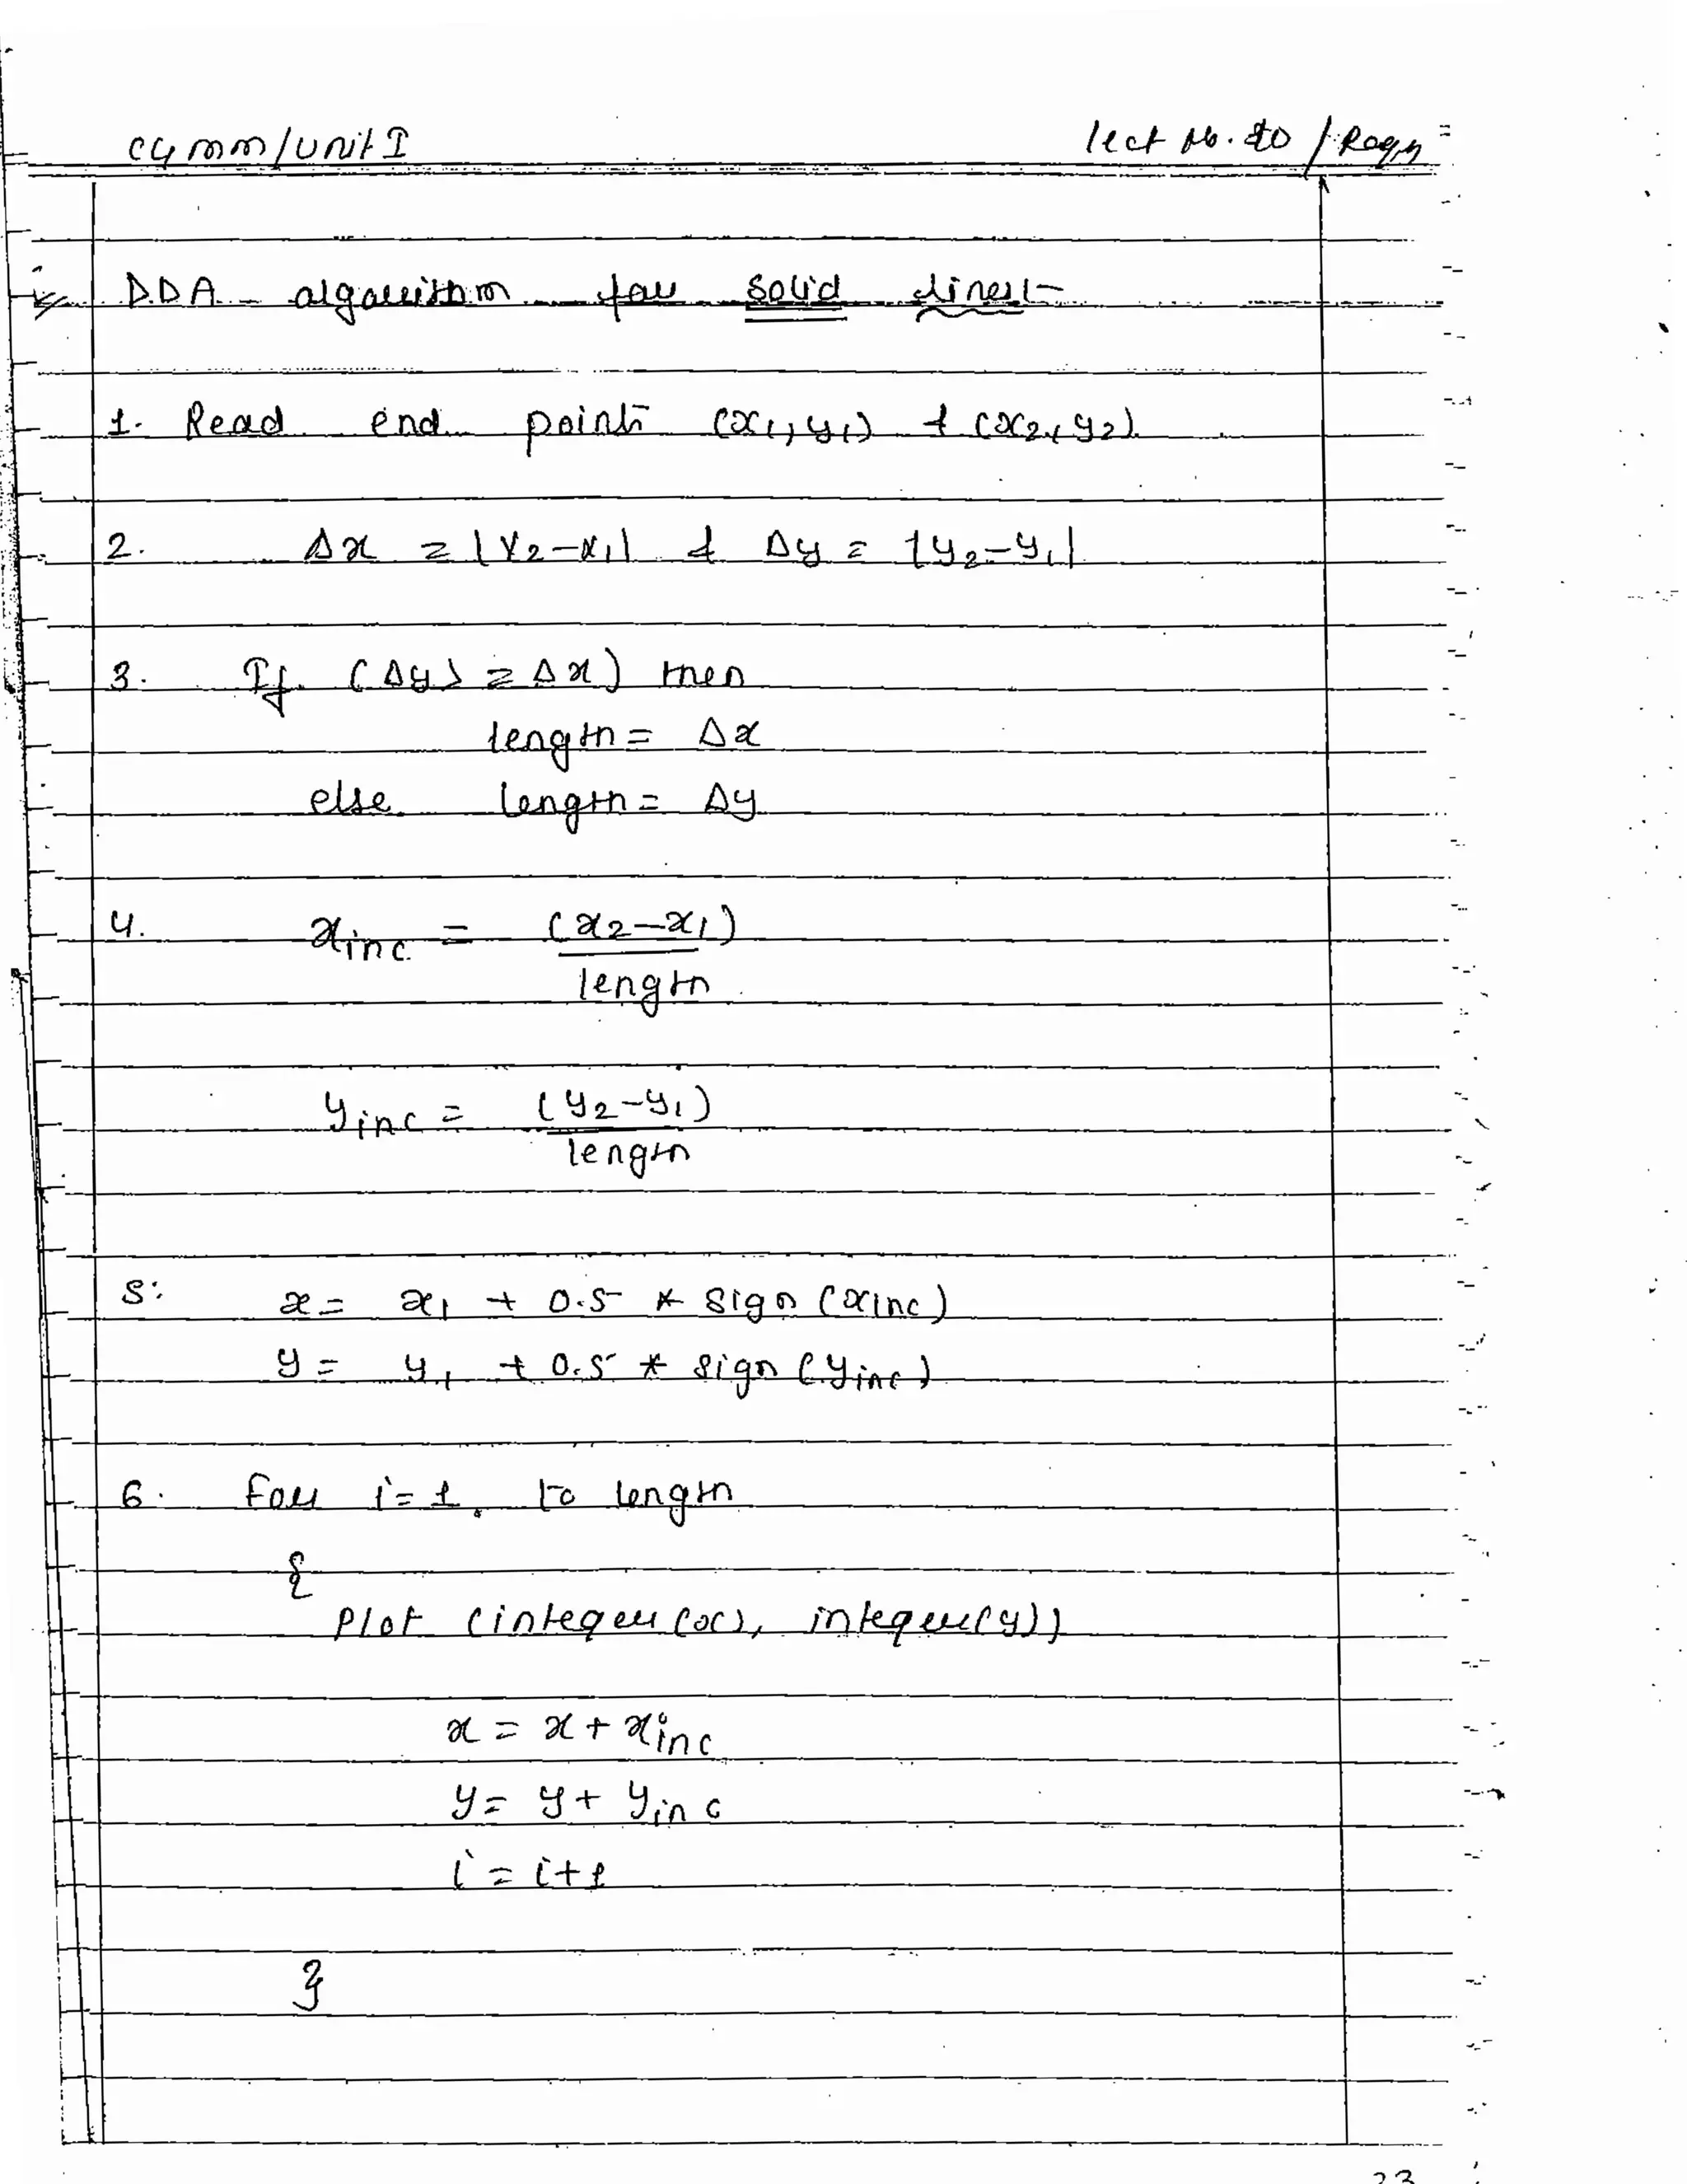 CGMM/Unit I
Lect No. 10 /
DDA algorithm for solid lines:-
1. Read end points (x1, y1) & (x2, y2).
2. Δx = |x2-x1| & Δy = |y2-y1|
3. If (Δy > = Δx) then
length = Δx
else length = Δy
4. xinc = (x2-x1)
length
yinc = (y2-y1)
length
5. x = x1 + 0.5 * sign (xinc)
y = y1 + 0.5 * sign (yinc)
6. For i=1 to length
{
Plot (integer (x), integer(y))
x = x + xinc
y = y + yinc
i = i+1
}
23